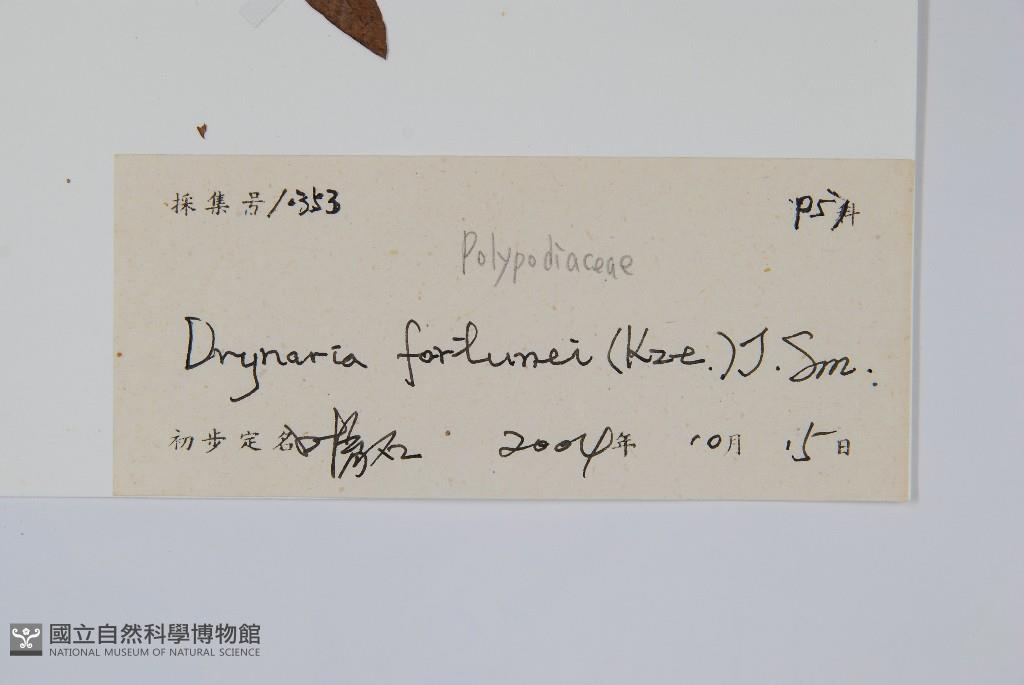 採集号 1.353 P51科
Polypodiaceae
Drynaria fortunei (Kze.) J. Sm.
初步定名 2004年 10月 15日
國立自然科學博物館
NATIONAL MUSEUM OF NATURAL SCIENCE